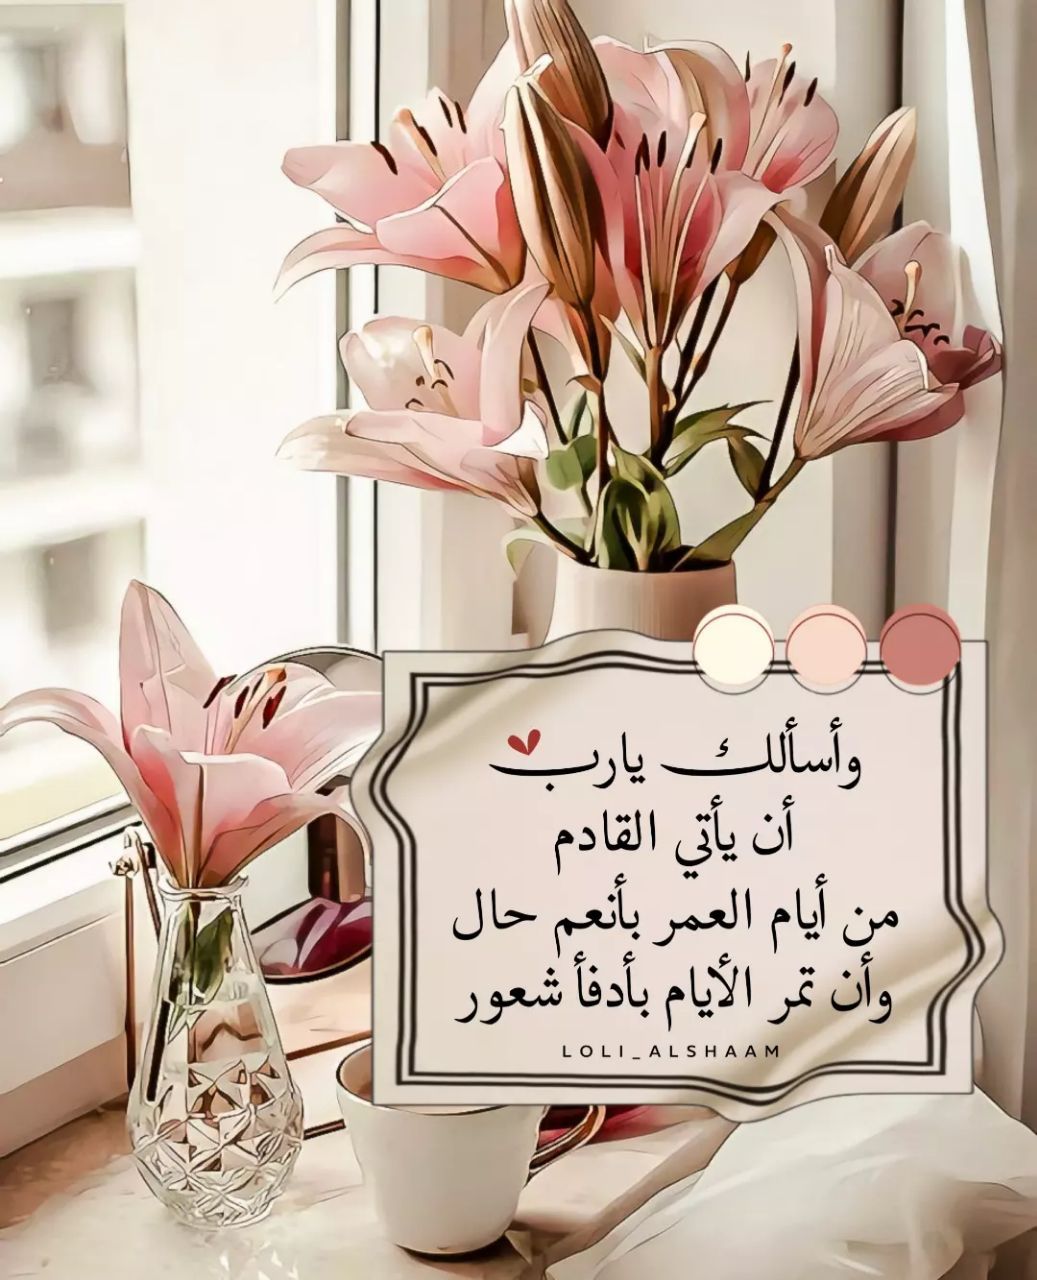 وأسألك يارب
أن يأتي القادم
من أيام العمر بأنعم حال
وأن تمر الأيام بأدفأ شعور
LOLI_ALSHAAM